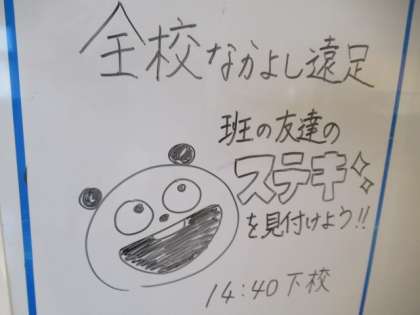 全校なかよし遠足
班の友達の
ステキ
を見付けよう!!
14:40下校